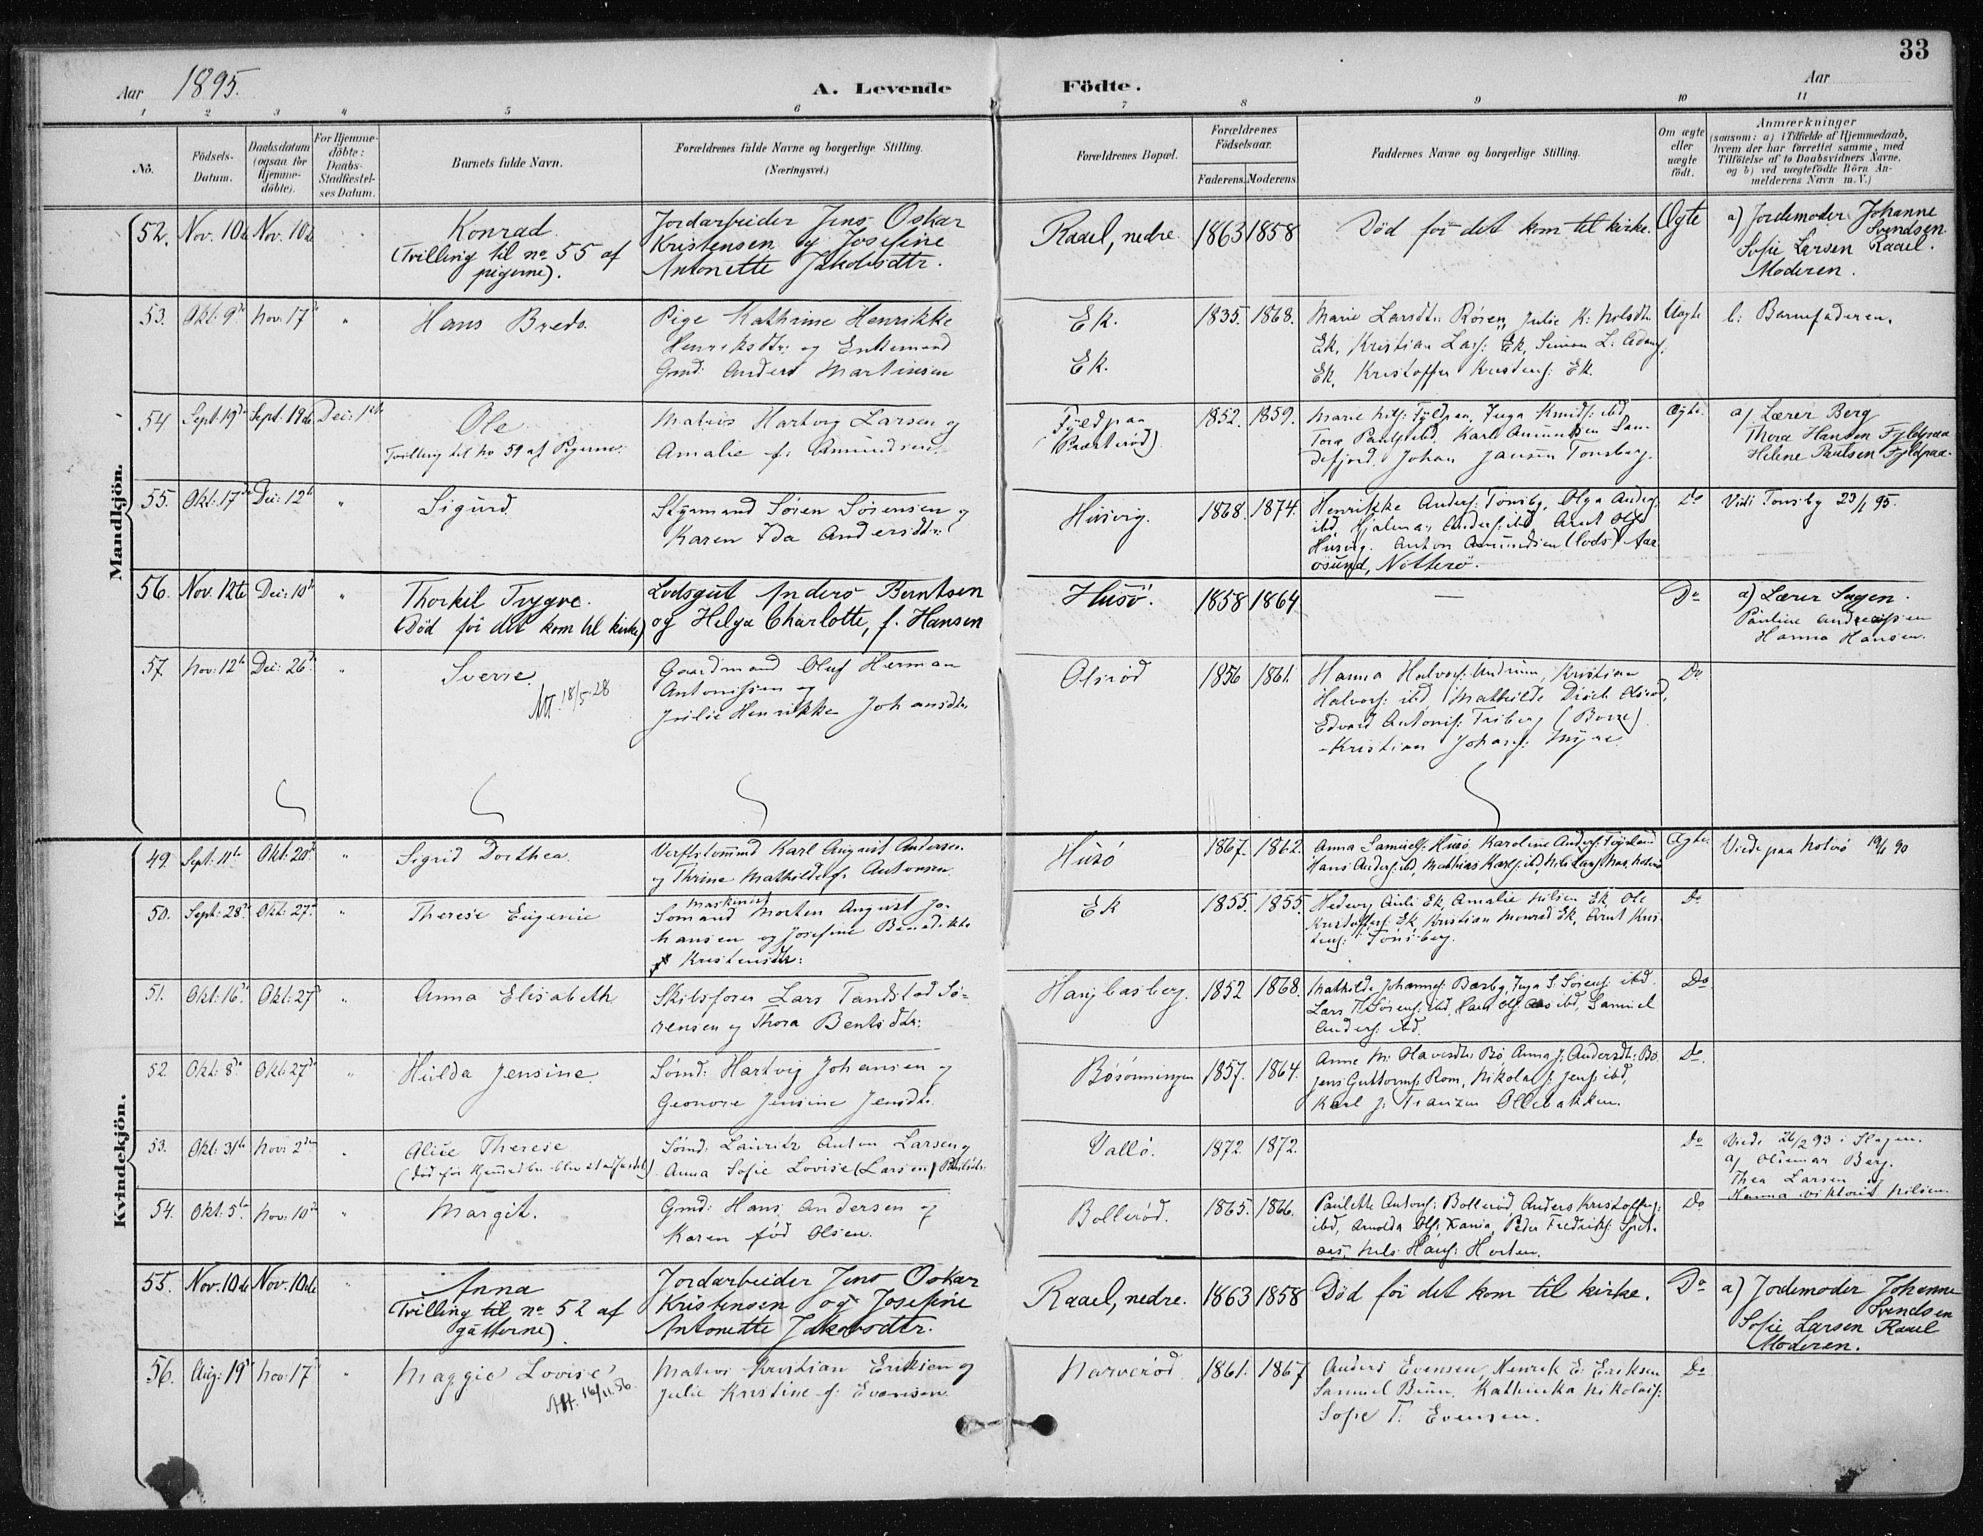 33
Aar 1895. A. Levende Födte. Aar
1 2 3 4 5 6 7 8 9 10 11
No.
Födsels-Datum.
Daabsdatum (ogsaa for Hjemme-döbte).
For Hjemme-döbte: Daabs-Stadfæstel-ses Datum.
Barnets fulde Navn.
Forældrenes fulde Navne og borgerlige Stilling. (Næringsvei.)
Forældrenes Bopæl.
Forældrenes Födselsaar.
Faderens. Moderens.
Faddernes Navne og borgerlige Stilling.
Om ægte eller uægte födt.
Anmærkninger
(saasom: a) i Tilfælde af Hjemmedaab,
hvem der har forrettet samme, med
Tilföielse af to Daabsvidners Navne,
og b) ved uægtefödte Börn An-
melderens Navn m. V.)
Mandkjön.
52. Nov. 10de Nov. 10de
Konrad
(Tvilling til no 55 af
pigerne).
Jordarbeider Jens Oskar
Kristensen og Josefine
Antonette Jakobsdtr.
Raael, nedre. 1863 1858
Död för det kom til kirke. Ægte
a) Jordemoder Johanne
Svendsen
Sofie Larsen Raael.
Moderen.
53. Okt. 9de Nov. 17de "
Hans Bredo.
Pige Kathrine Henrikke
Henriksdtr. og Enkemand
Gmd. Anders Martinsen
Ek.
Ek.
1835. 1868.
Marie Larsdtr. Røsen, Julie K. Nilsdtr.
Ek, Kristian Lars: Ek, Simon L.
Ek, Kristoffer Kristens: Ek.
Uægte b: Barnefaderen.
54 Sept. 19de Sept. 19de Dec: 1ste
Ole
Tvilling til no 59 af Pigerne.
Matros Hartvig Larsen og
Amalie f. Amundsen
Fyldpaa
1852. 1859.
Marie Nils: Fyldpaa, Inga Knuds: ibd,
Tora Pauls: ibd, Karl Amundsen San-
defjord. Johan Jansen Tonsberg.
Ægte.
a) Lærer Berg
Thora Hansen Fyldpaa
Helene Paulsen Fyldpaa.
55. Okt: 17de Dec: 12te "
Sigurd.
Styrmand Sören Sörensen og
Karen Ida Andersdtr.
Husvig. 1868. 1874.
Henrikke Anders: Tonsbg, Olga Anders:
ibd, Hjalmar Anders: ibd, Arnt Ols:
Husvig. Anton Amundsen (Lods) Aar-
ösund, Nötterö.
Do Viet Tonsbg 23/1 95.
56. Nov. 12te Dec: 10de "
Thorkil Trygve.
(Död för det kom til kirke)
Lodsgut Anders Berntsen
og Helga Charlotte, f. Hansen
Husö. 1858 1864 — Do
a) Lærer Sagen.
Pauline Andreassen
Hanna Hansen.
57. Nov: 12te Dec: 26de "
Sverre.
Att. 18/5 28
Gaardmand Oluf Herman
Antonissen og
Julie Henrikke Johansdtr.
Olsröd 1856 1861.
Hanna Halvors: Kristian
Halvors: ibd, Mathilde Olsröd,
Edvard Antonis: (Borre).
Kristian Johans: Myre.
Do
Kvindekjön.
49. Sept: 11te Okt: 20de "
Sigrid Dorthea.
Karl August Andersen
og Thrine Mathilde f. Antonsen
Husö 1867. 1862.
Anna Samuels: Husö, Karoline Anders:
Hans Anders: ibd, Mathias Karls: ibd, Nils Lars:
Ægte. Viede paa Noterö 19/6 90
50. Sept: 28de Okt: 27de "
Therese Eugenie
Maskinist
Sömand Morten August Jo-
hansen og Josefine Benedikte
Kristensdtr:
Ek 1855. 1855.
Hedevig Ek, Amalie Nilsen Ek, Ole
Kristoffers: Ek, Kristian Monrad Ek, Arnt Kris-
tens: Tönsberg.
Do
51. Okt: 16de Okt: 27de "
Anna Elisabeth
Skibsförer Lars Tandstad Sö-
rensen og Thora Berntsdtr:
Haugbasberg. 1852 1868.
Mathilde Johannes: Basbg, Inga S. Sörens: ibd.
Lars T. Sörens: ibd, Hans Ols: Aas ibd, Samuel
Anders: ibd.
Do
52. Okt: 8de Okt: 27de "
Hulda Jensine.
Sömd: Hartvig Johansen og
Geonore Jensine Jensdtr.
1857. 1864.
Anne M. Olavesdtr: Bö, Anna J. Andersdtr: Bö
Jens Guttorms: Rom, Nikolai J. Jens: ibd,
Karl J. Franzen Ollebakken.
Do.
53. Okt: 31te Nov: 2den "
Alice Therese
Sömd: Lauritz Anton Larsen og
Anna Sofie Lovise (Larsen)
Vallö. 1872. 1872. Do
Viede 26/2 93 i Slagen.
a) Olemar Berg.
Thea Larsen og
Hanna Viktoria Nilsen.
54. Okt: 5te Nov: 10de "
Margit.
Gmd: Hans Andersen og
Karen född Olsen.
Bolleröd. 1865. 1866.
Paulette Antons: Bolleröd, Anders Kristoffers:
ibd, Arnolda Ols: Peder Fredriks:
Nils Hans: Horten.
Do
55. Nov. 10de Nov. 10de "
Anna
(Tvilling til no 52 af
gutterne).
Jordarbeider Jens Oskar
Kristensen og Josefine
Antonette Jakobsdtr.
Raael, nedre. 1863 1858
Död för det kom til kirke. Do
a) Jordemoder Johanne
Svendsen
Sofie Larsen Raael
Moderen.
56. Aug: 19de Nov: 17de "
Maggie Lovise
Att. 16/11.56.
Matros Kristian Eriksen og
Julie Kristine f: Evensen
Narveröd 1861. 1867
Anders Evensen, Henrik E. Eriksen
Samuel Bruun, Kathinka Nikolais:
Sofie T. Evensen.
Do